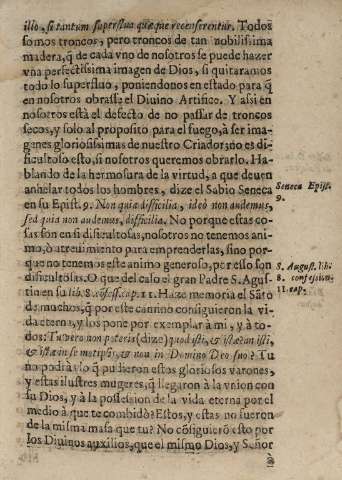 illo, si tantum superflua quæque recenserentur. Todos
somos troncos, pero troncos de tan nobilissima
madera, q̃ de cada vno de nosotros se puede hazer
vna perfectissima imagen de Dios, si quitaramos
todo lo superfluo, poniendonos en estado para q̃
en nosotros obrasse el Diuino Artifice. Y assi en
nosotros està el defecto de no passar de troncos
secos, y solo al proposito para el fuego, à ser ima-
genes gloriosissimas de nuestro Criador; no es di-
ficultoso esto, si nosotros queremos obrarlo. Ha-
blando de la hermosura de la virtud, a que deuen
anhelar todos los hombres, dize el Sabio Seneca
en su Epist. 9. Non quia difficilia, ideò non audemus,
sed quia non audemus, difficilia. No porque estas co-
sas son en si dificultosas, nosotros no tenemos ani-
mo, ò atreuimiento para emprenderlas, sino por-
que no tenemos este animo generoso, por esso son
dificultosas. O que del caso el gran Padre S. Agus-
tin en su lib. 8. cõfess. cap. 11. Haze memoria el Sãto
de muchos, q̃ por este camino consiguieron la vi-
da eterna, y los pone por exemplar à mi, y à to-
dos: Tu vero non poteris (dize) quod isti, & istæ? an isti,
& istæ in se metipsis, & non in Domino Deo suo? Tu
no podrà lo q̃ pudieron estos gloriosos varones,
y estas ilustres mugeres, q̃ llegaron à la vnion con
su Dios, y à la possession de la vida eterna por el
medio à que te combidò? Estos, y estas no fueron
de la misma masa que tu? No cõsiguierõ esto por
los Diuinos auxilios, que el mismo Dios, y Señor
à
Seneca Epist.
9.
S. August. lib.
8. confession.
11. cap.